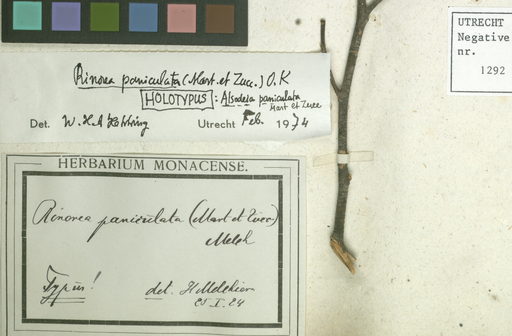 UTRECHT
Negative
nr.
1292
Rinorea paniculata (Mart. et Zucc.) O.K
HOLOTYPUS: Alsodeia paniculata
Mart et Zucc
Det. W.H.A. Hekking Utrecht Feb. 1974
HERBARIUM MONACENSE.
Rinorea paniculata (Mart et Zucc.)
Melch
Typus! det. H Melchior
25 I. 24